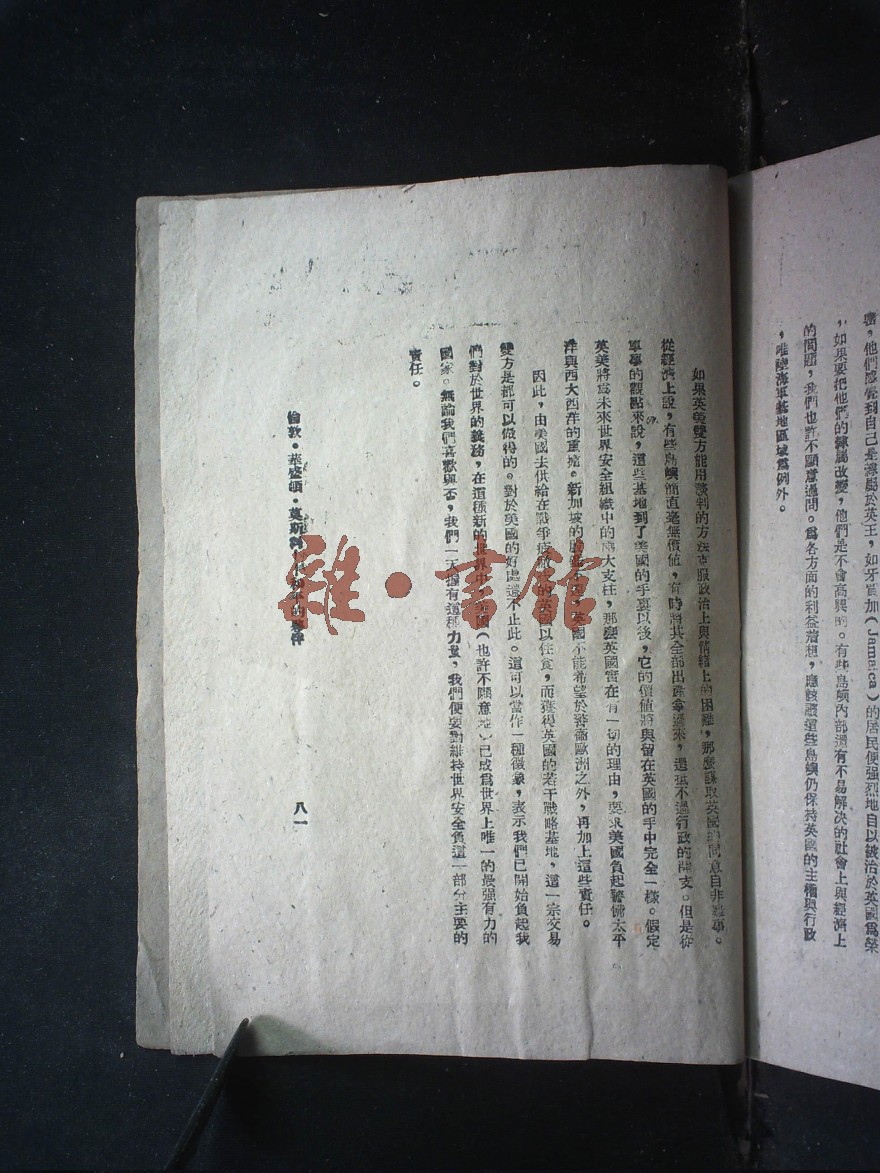 ，他們感覺到自己是隸屬於英王，如牙買加（Jamaica）的居民便強烈地自以被治於英國爲榮
，如果要把他們的隸屬改變，他們是不會高興的。有些島嶼內部還有不易解決的社會上與經濟上
的問題，我們也許不願意過問。爲各方面的利益着想，應該讓這些島嶼仍保持英國的主權與行政
，唯陸海軍基地區域爲例外。
如果英美雙方能用談判的方法克服政治上與情緒上的困難，那麼謀取英國的同意自非難事。
從經濟上說，有些島嶼簡直毫無價値，有時將其全部出產拿過來，還抵不過行政的開支。但是從
軍事的觀點來說，這些基地到了美國的手裏以後，它的價値將與留在英國的手中完全一樣。假定
英美將爲未來世界安全組織中的兩大支柱，那麼英國實在有一切的理由，要求美國負起警備太平
洋與西大西洋的重擔。新加坡的 英國不能希望於警備歐洲之外，再加上這些責任。
因此，由美國去供給在戰爭疲 的英國以住食，而獲得英國的若干戰略基地，這一宗交易
雙方是都可以做得的。對於美國的好處還不止此。這可以當作一種徵象，表示我們已開始負起我
們對於世界的義務，在這種新的世界中，美國（也許不願意地）已成爲世界上唯一的最強有力的
國家。無論我們喜歡與否，我們一天握有這種力量，我們便要對維持世界安全負這一部分主要的
責任。
倫敦・華盛頓・莫斯科 和平的夥伴
八一
雜・書館